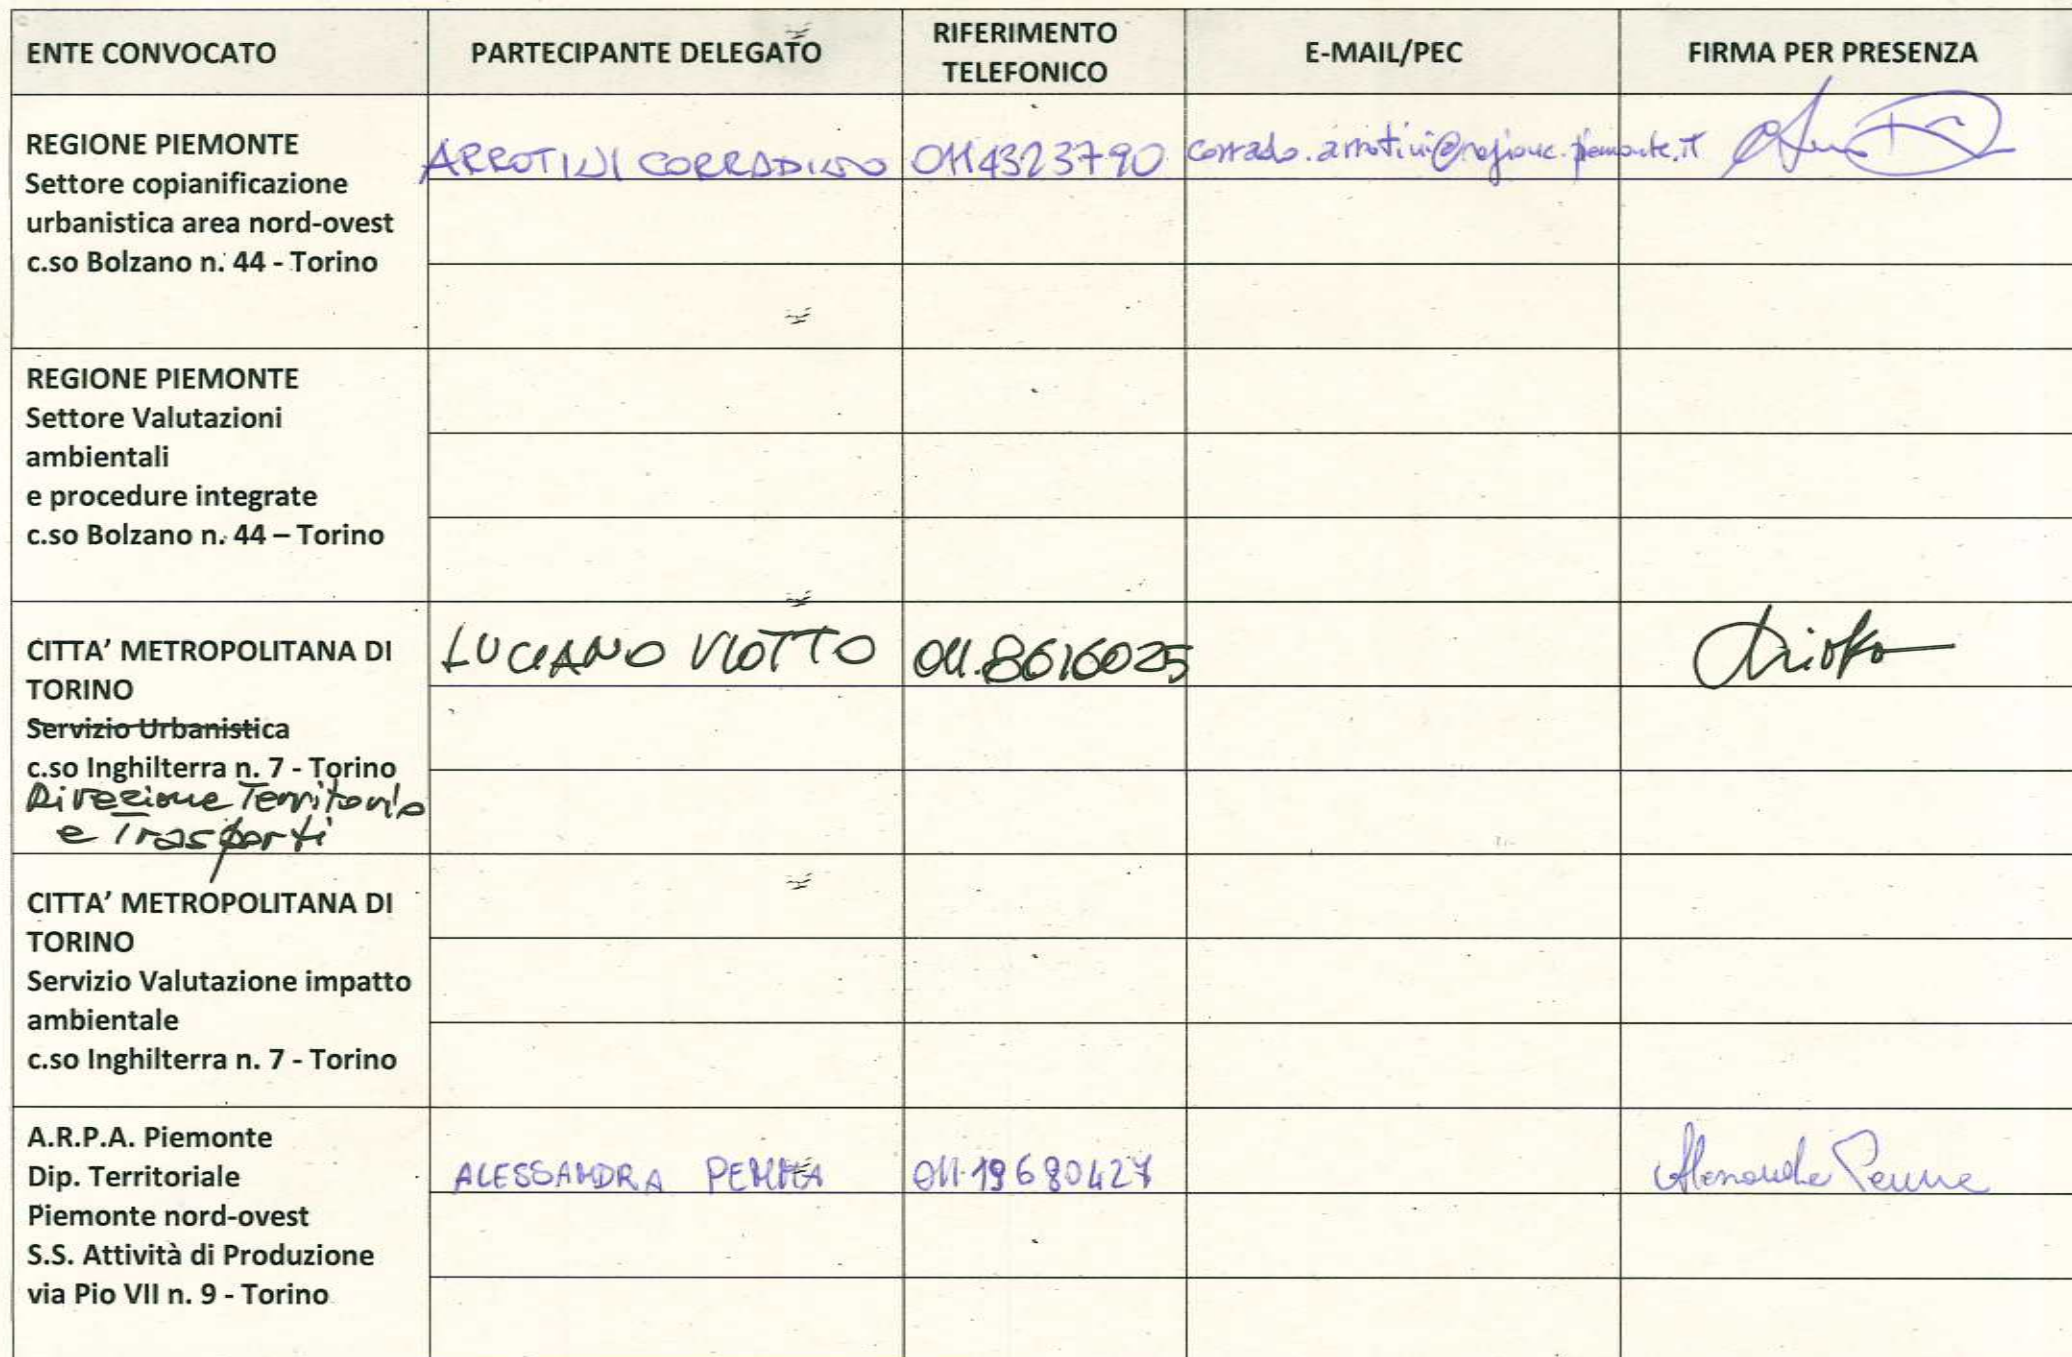 ENTE CONVOCATO
PARTECIPANTE DELEGATO
RIFERIMENTO
TELEFONICO
E-MAIL/PEC
FIRMA PER PRESENZA
REGIONE PIEMONTE
Settore copianificazione
urbanistica area nord-ovest
c.so Bolzano n. 44 - Torino
ARROTINI CORRADINO
0114323790
corrado.arrotini@regione.piemonte.it
REGIONE PIEMONTE
Settore Valutazioni
ambientali
e procedure integrate
c.so Bolzano n. 44 – Torino
CITTA' METROPOLITANA DI
TORINO
Servizio Urbanistica
c.so Inghilterra n. 7 - Torino
Direzione Territorio
e Trasporti
LUCIANO VIOTTO
011.8616025
Viotto
CITTA' METROPOLITANA DI
TORINO
Servizio Valutazione impatto
ambientale
c.so Inghilterra n. 7 - Torino
A.R.P.A. Piemonte
Dip. Territoriale
Piemonte nord-ovest
S.S. Attività di Produzione
via Pio VII n. 9 - Torino
ALESSANDRA PENNA
011-19680427
Alessandra Penna